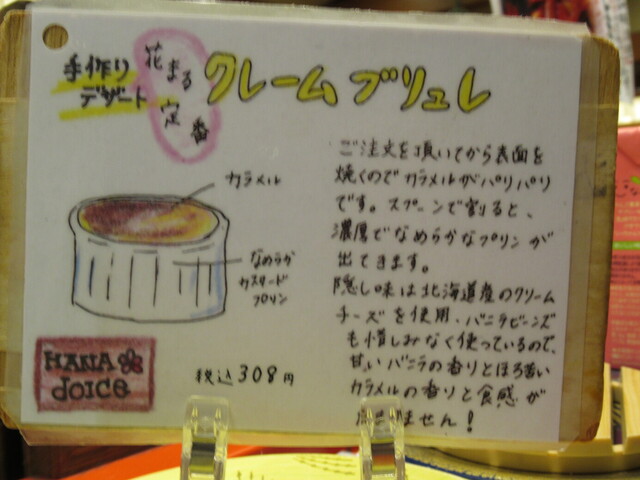 手作り
デザート
花まる
定番
クレームブリュレ
カラメル
なめらか
カスタード
プリン
HANA
dOICe
税込308円
ご注文を頂いてから表面を
焼くのでカラメルがパリパリ
です。スプーンで割ると、
濃厚でなめらかなプリンが
出てきます。
隠し味は北海道産のクリーム
チーズを使用、バニラビーンズ
も惜しみなく使っているので、
甘いバニラの香りとほろ苦い
カラメルの香りと食感が
ません!